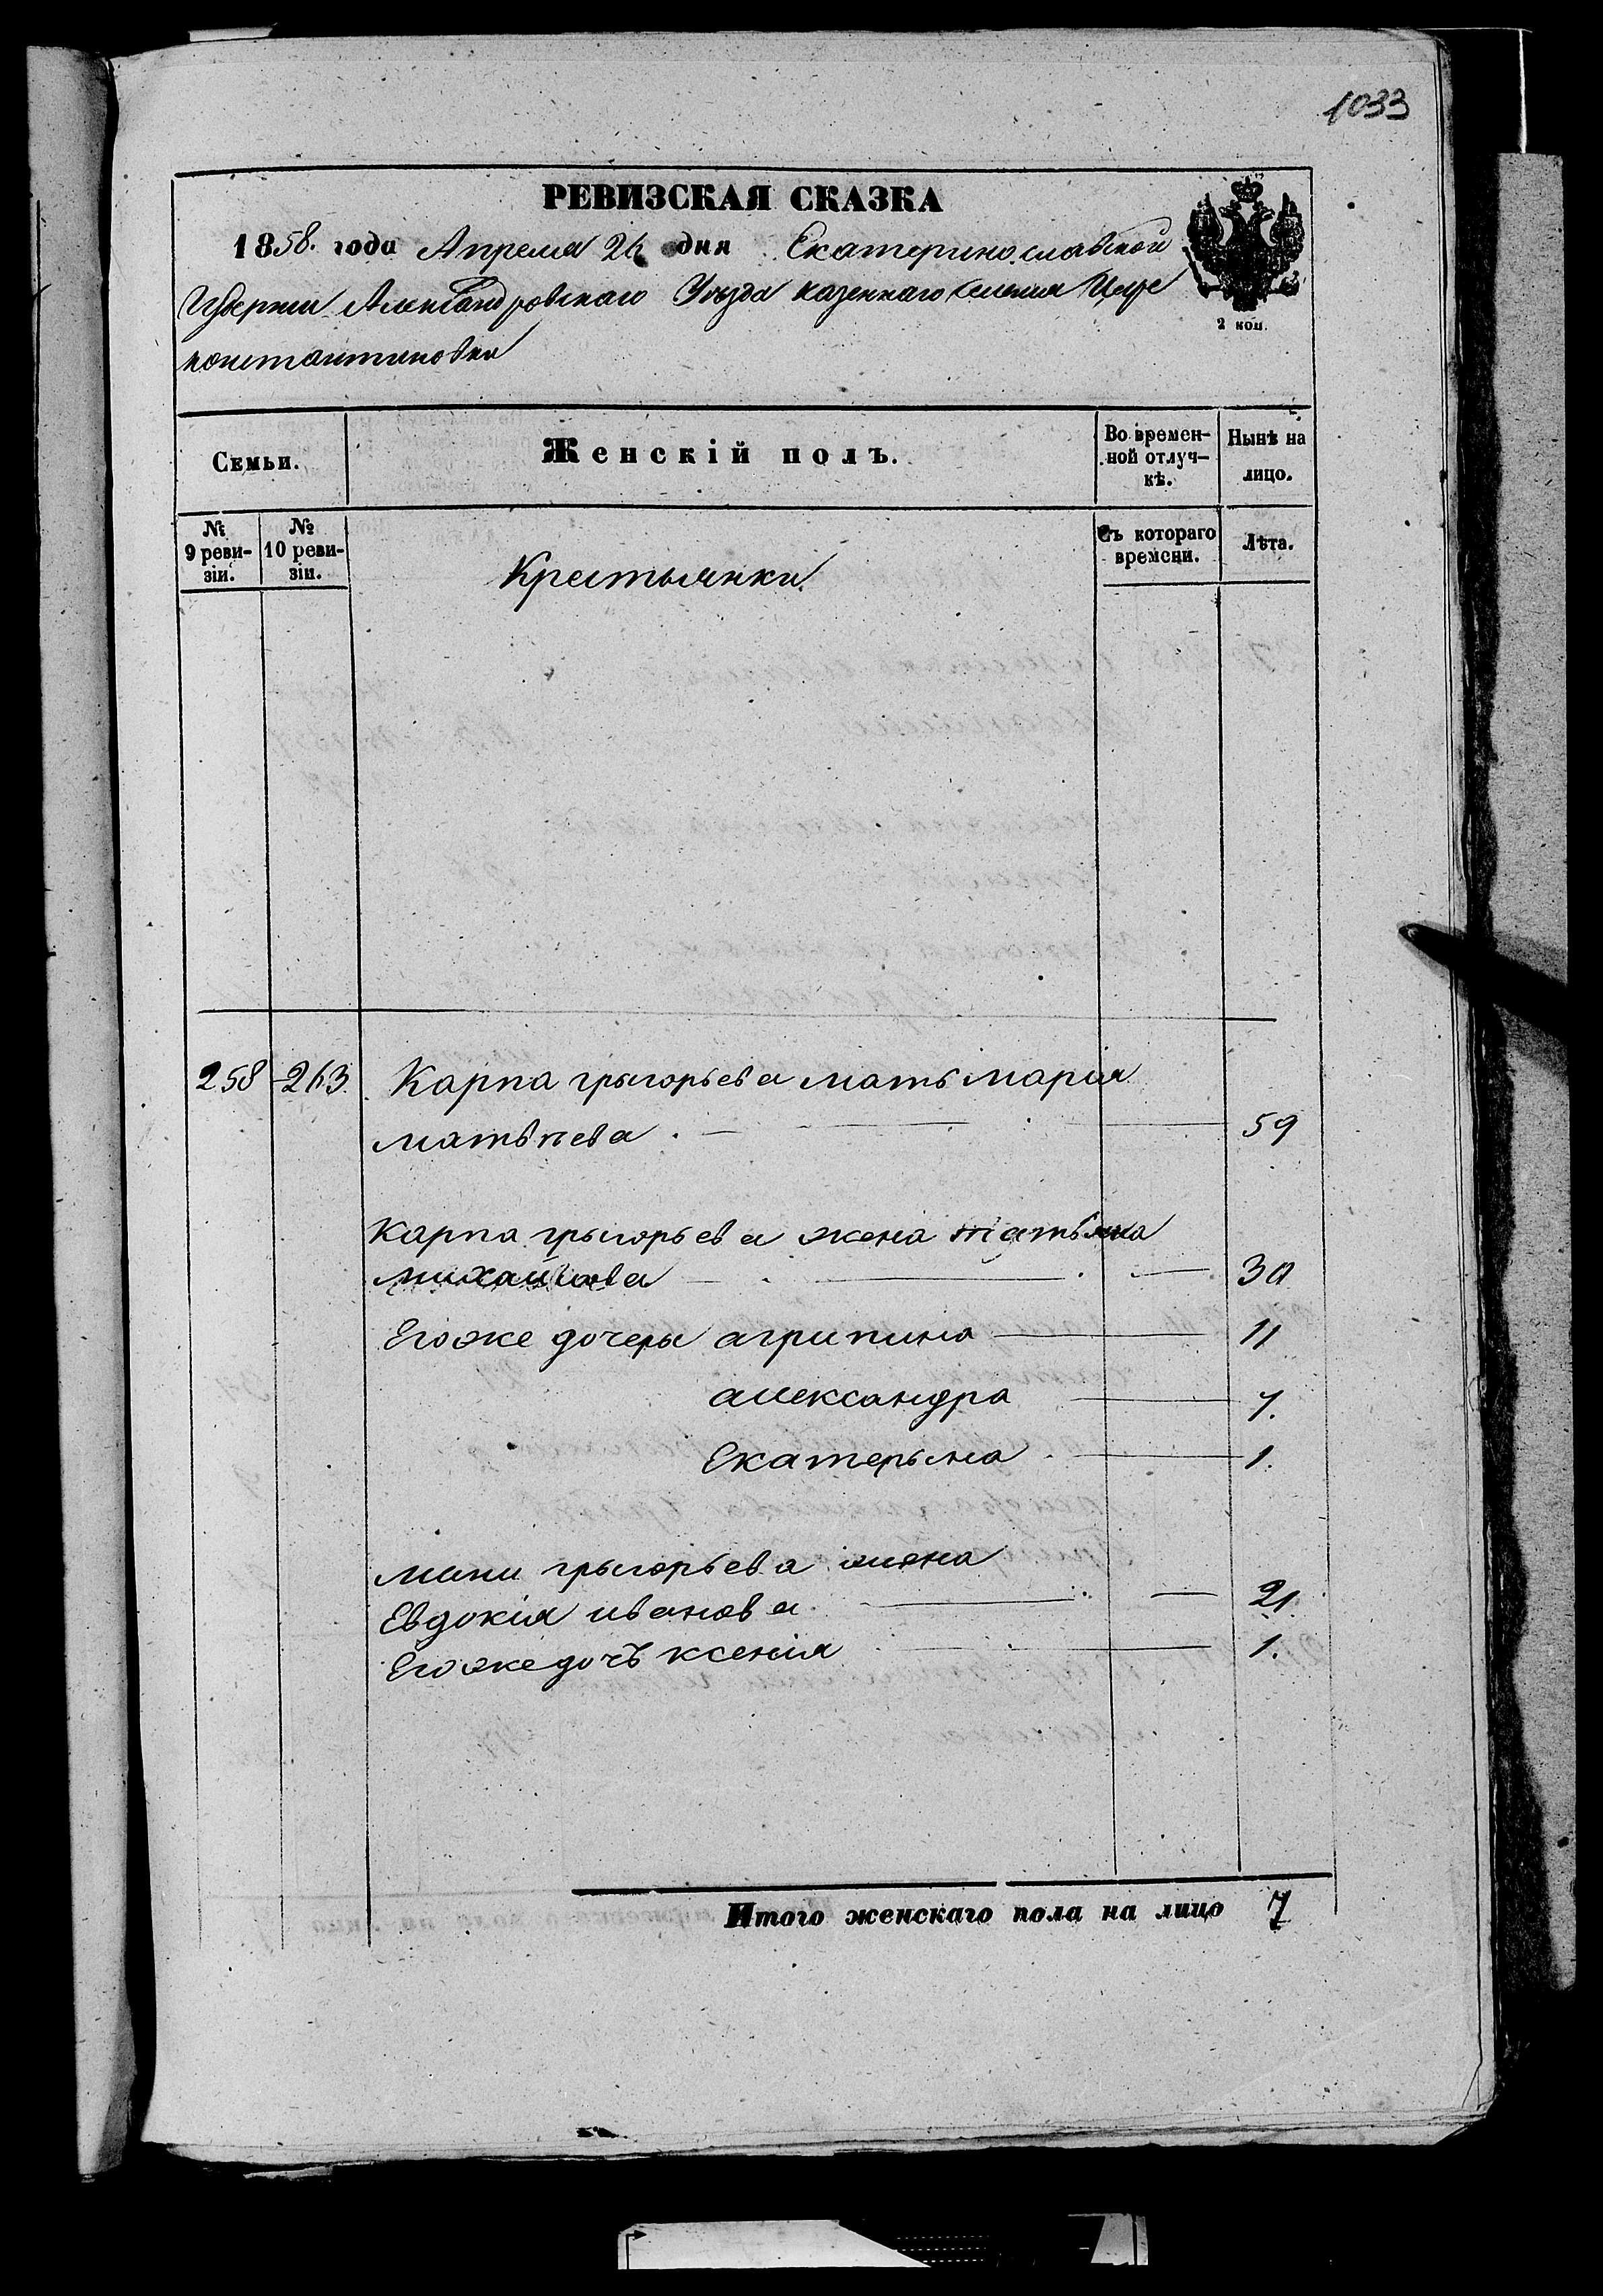 1033
РЕВИЗСКАЯ СКАЗКА
1858. года Апреля 26 дня Екатеринославской
Губернии Александровскаго Уѣзда казеннаго селения Царе
константиновки
2 коп.
Семьи.
Женскій полъ.
Во времен-
ной отлуч-
кѣ.
Нынѣ на
лицо.
№
9 реви-
зіи.
№
10 реви-
зіи.
Крестьянки
Съ котораго
времени.
Лѣта.
258 263. Карпа григорьева мать мария
матвѣева 59
Карпа григорьева жена татьяна
михайлова 30
Егоже дочеры агрипина 11
александра 7.
Екатерына 1.
григорьева жена
Евдокія иванова 21.
Егоже дочъ ксенія 1.
Итого женскаго пола на лицо 7